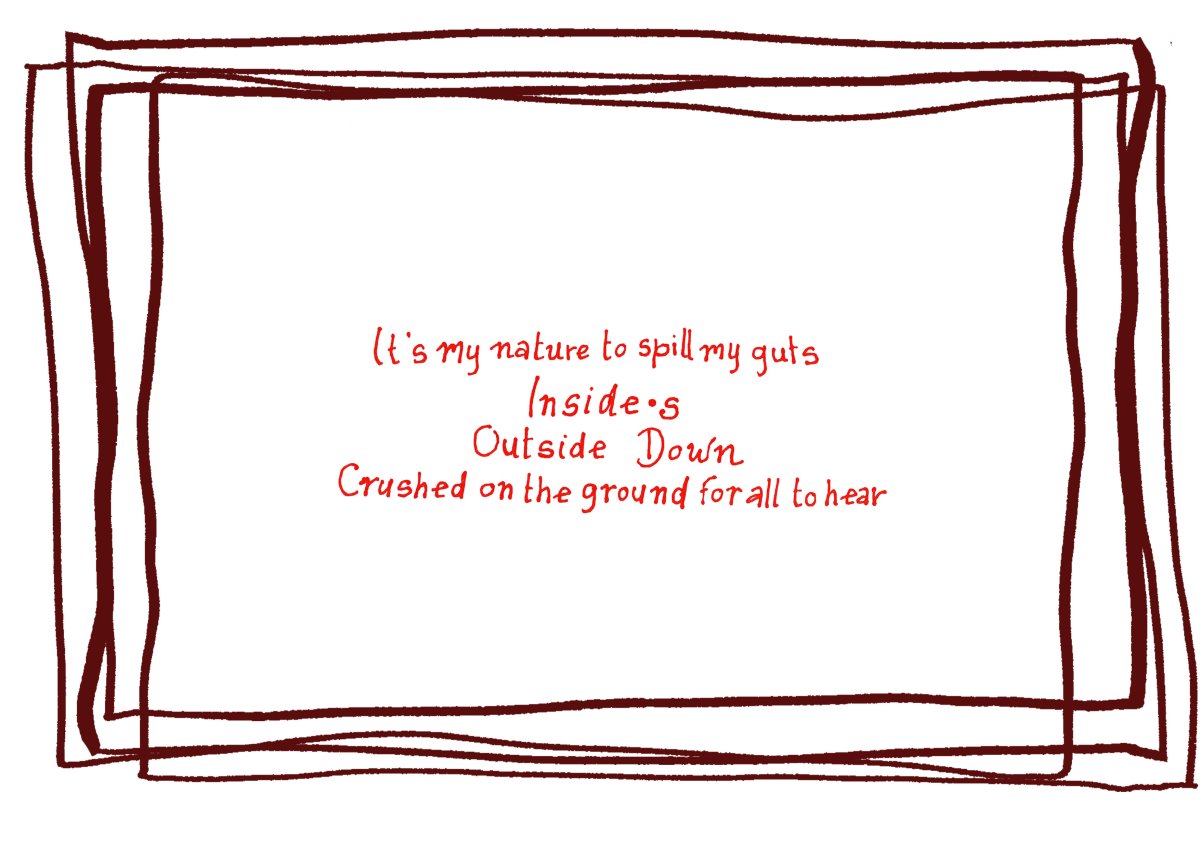 It's my nature to spill my guts
Inside•s
Outside Down
Crushed on the ground for all to hear